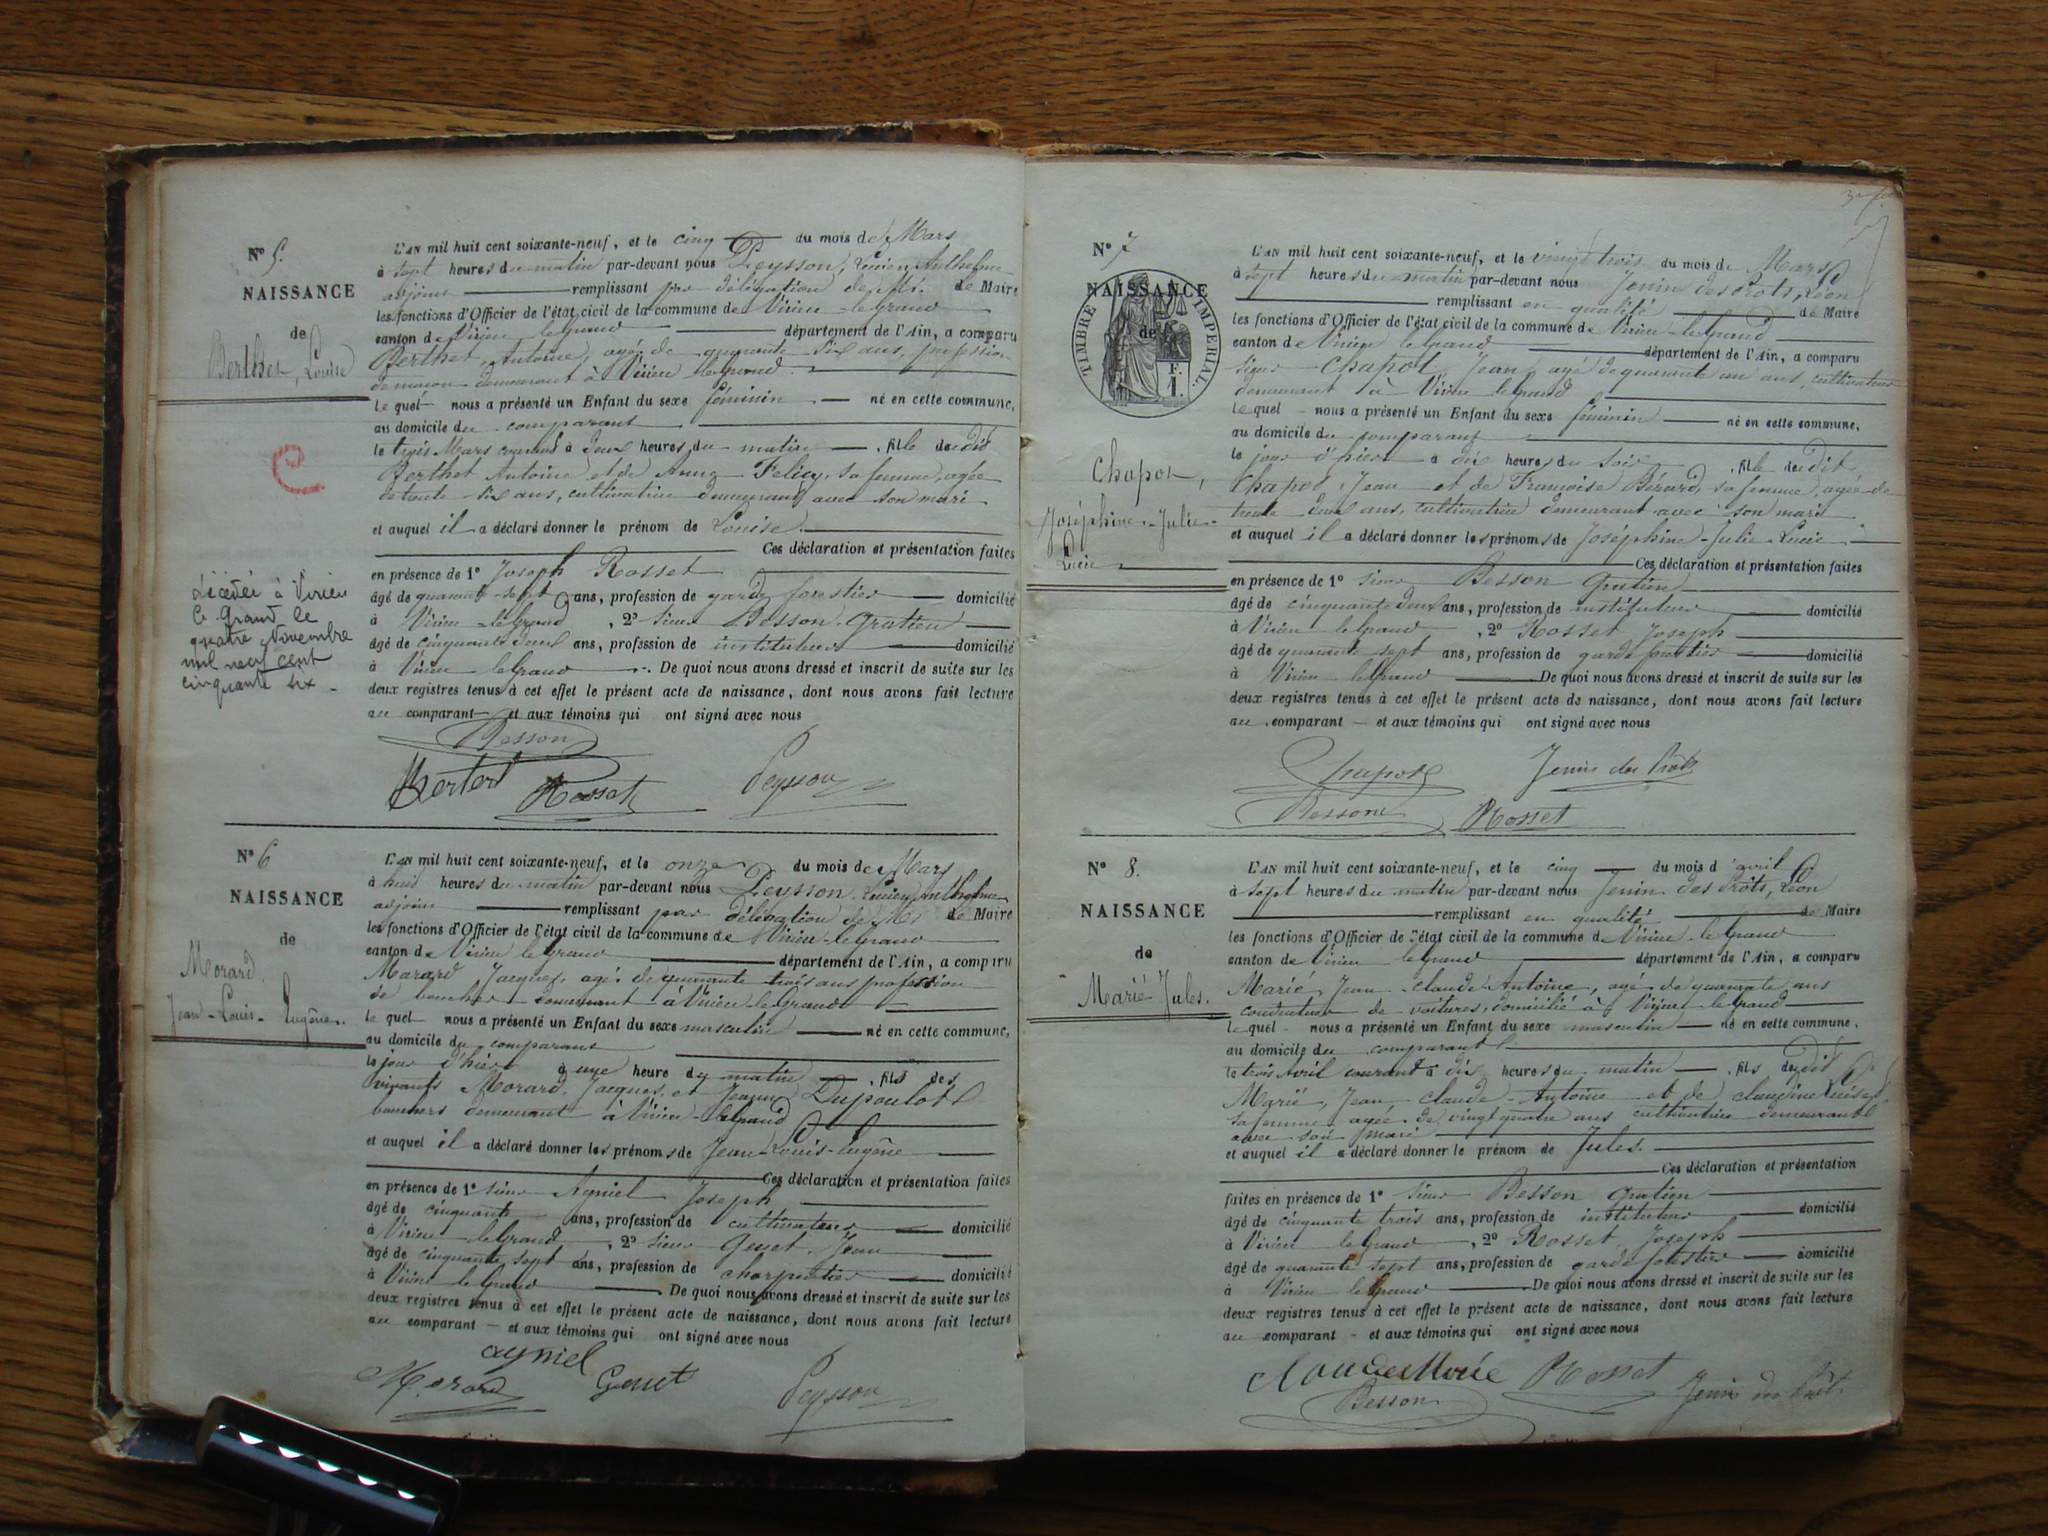 N° 5.
NAISSANCE
de
Berthet, Louise
L'AN mil huit cent soixante-neuf, et le cinq du mois de Mars
à sept heures du matin par-devant nous Peysson, Lucien Anthelme
adjoint remplissant par délégation de Mr. de Maire
les fonctions d'Officier de l'état civil de la commune de Virieu-le-grand
canton de Virieu le grand département de l'Ain, a comparu
Berthet, Antoine, agé de quarante six ans, profession
de maçon demeurant à Virieu le grand.
le quel nous a présenté un Enfant du sexe féminin né en cette commune,
au domicile du comparant
le trois Mars courant à deux heures du matin, fille du dit
Berthet Antoine et de Felicy, sa femme, agée
de trente six ans, cultivatrice demeurant avec son mari
et auquel il a déclaré donner le prénom de Louise.
Ces déclaration et présentation faites
en présence de 1° Joseph Rosset
âgé de quarante sept ans, profession de garde forestier domicilié
à Virieu-le-Grand, 2° sieur Besson Gratien
âgé de cinquante deux ans, profession de instituteur domicilié
à Virieu le Grand. De quoi nous avons dressé et inscrit de suite sur les
deux registres tenus à cet effet le présent acte de naissance, dont nous avons fait lecture
au comparant et aux témoins qui ont signé avec nous
Besson
Rosset Peysson
décédée à Virieu
le Grand le
quatre Novembre
mil neuf cent
cinquante six
N° 6
NAISSANCE
de
Morard.
Jean-Louis-Eugène.
L'AN mil huit cent soixante-neuf, et le onze du mois de Mars
à huit heures du matin par-devant nous Peysson, Lucien Anthelme
adjoint remplissant par délégation de Mr de Maire
les fonctions d'Officier de l'état civil de la commune de Virieu-le-grand
canton de Virieu le Grand département de l'Ain, a comparu
Morard Jacques, agé de quarante trois ans profession
de boucher demeurant à Virieu-le-Grand
le quel nous a présenté un Enfant du sexe masculin né en cette commune,
au domicile du comparant
le jour d'hier à une heure du matin, fils des
vivants Morard, Jacques, et Jeanne Dupoulot
bouchers demeurant à Virieu-le-grand
et auquel il a déclaré donner les prénoms de Jean-Louis-Eugène
Ces déclaration et présentation faites
en présence de 1° sieur Ayniel Joseph
âgé de cinquante ans, profession de cultivateur domicilié
à Virieu-le-Grand, 2° sieur Genet Jean
âgé de cinquante sept ans, profession de charpentier domicilié
à Virieu le Grand De quoi nous avons dressé et inscrit de suite sur les
deux registres tenus à cet effet le présent acte de naissance, dont nous avons fait lecture
au comparant et aux témoins qui ont signé avec nous
ayniel
Morard Genet Peysson
N° 7
NAISSANCE
de
TIMBRE IMPERIAL
1 F.
Chapot,
Joséphine-Julie-
Lucie
L'AN mil huit cent soixante-neuf, et le vingt trois du mois de Mars
à sept heures du matin par-devant nous Jenin des Prots, Léon
remplissant en qualité de Maire
les fonctions d'Officier de l'état civil de la commune de Virieu-le-Grand
canton de Virieu le Grand département de l'Ain, a comparu
sieur Chapot Jean, agé de quarante un ans, cultivateur
demeurant à Virieu le grand
le quel nous a présenté un Enfant du sexe féminin né en cette commune,
au domicile du comparant
le jour d'hier à dix heures du soir, fille du dit
Chapot, Jean et de Françoise Bérard, sa femme, agée de
trente deux ans, cultivatrice demeurant avec son mari
et auquel il a déclaré donner les prénoms de Joséphine-Julie-Lucie
Ces déclaration et présentation faites
en présence de 1° sieur Besson Gratien
âgé de cinquante deux ans, profession de instituteur domicilié
à Virieu le grand, 2° Rosset Joseph
âgé de quarante sept ans, profession de garde forestier domicilié
à Virieu le Grand De quoi nous avons dressé et inscrit de suite sur les
deux registres tenus à cet effet le présent acte de naissance, dont nous avons fait lecture
au comparant et aux témoins qui ont signé avec nous
Chapot Jenin des Prots
Besson Rosset
N° 8.
NAISSANCE
de
Marié Jules.
L'AN mil huit cent soixante-neuf, et le cinq du mois d'avril
à sept heures du matin par-devant nous Jenin des Prots, Léon
remplissant en qualité de Maire
les fonctions d'Officier de l'état civil de la commune de Virieu-le-Grand
canton de Virieu le Grand département de l'Ain, a comparu
Marié, Jean-Claude-Antoine, agé de quarante ans
conducteur de voitures, domicilié à Virieu-le-Grand
le quel nous a présenté un Enfant du sexe masculin né en cette commune,
au domicile du comparant
le trois Avril courant à dix heures du matin, fils du dit
Marié, Jean Claude-Antoine et de Claudine
sa femme agée de vingt quatre ans cultivatrice demeurant
avec son mari
et auquel il a déclaré donner le prénom de Jules.
Ces déclaration et présentation
faites en présence de 1° sieur Besson Gratien
âgé de cinquante trois ans, profession de instituteur domicilié
à Virieu le Grand, 2° Rosset Joseph
âgé de quarante sept ans, profession de garde forestier domicilié
à Virieu le Grand De quoi nous avons dressé et inscrit de suite sur les
deux registres tenus à cet effet le présent acte de naissance, dont nous avons fait lecture
au comparant et aux témoins qui ont signé avec nous
Rosset
Besson Jenin des Prots